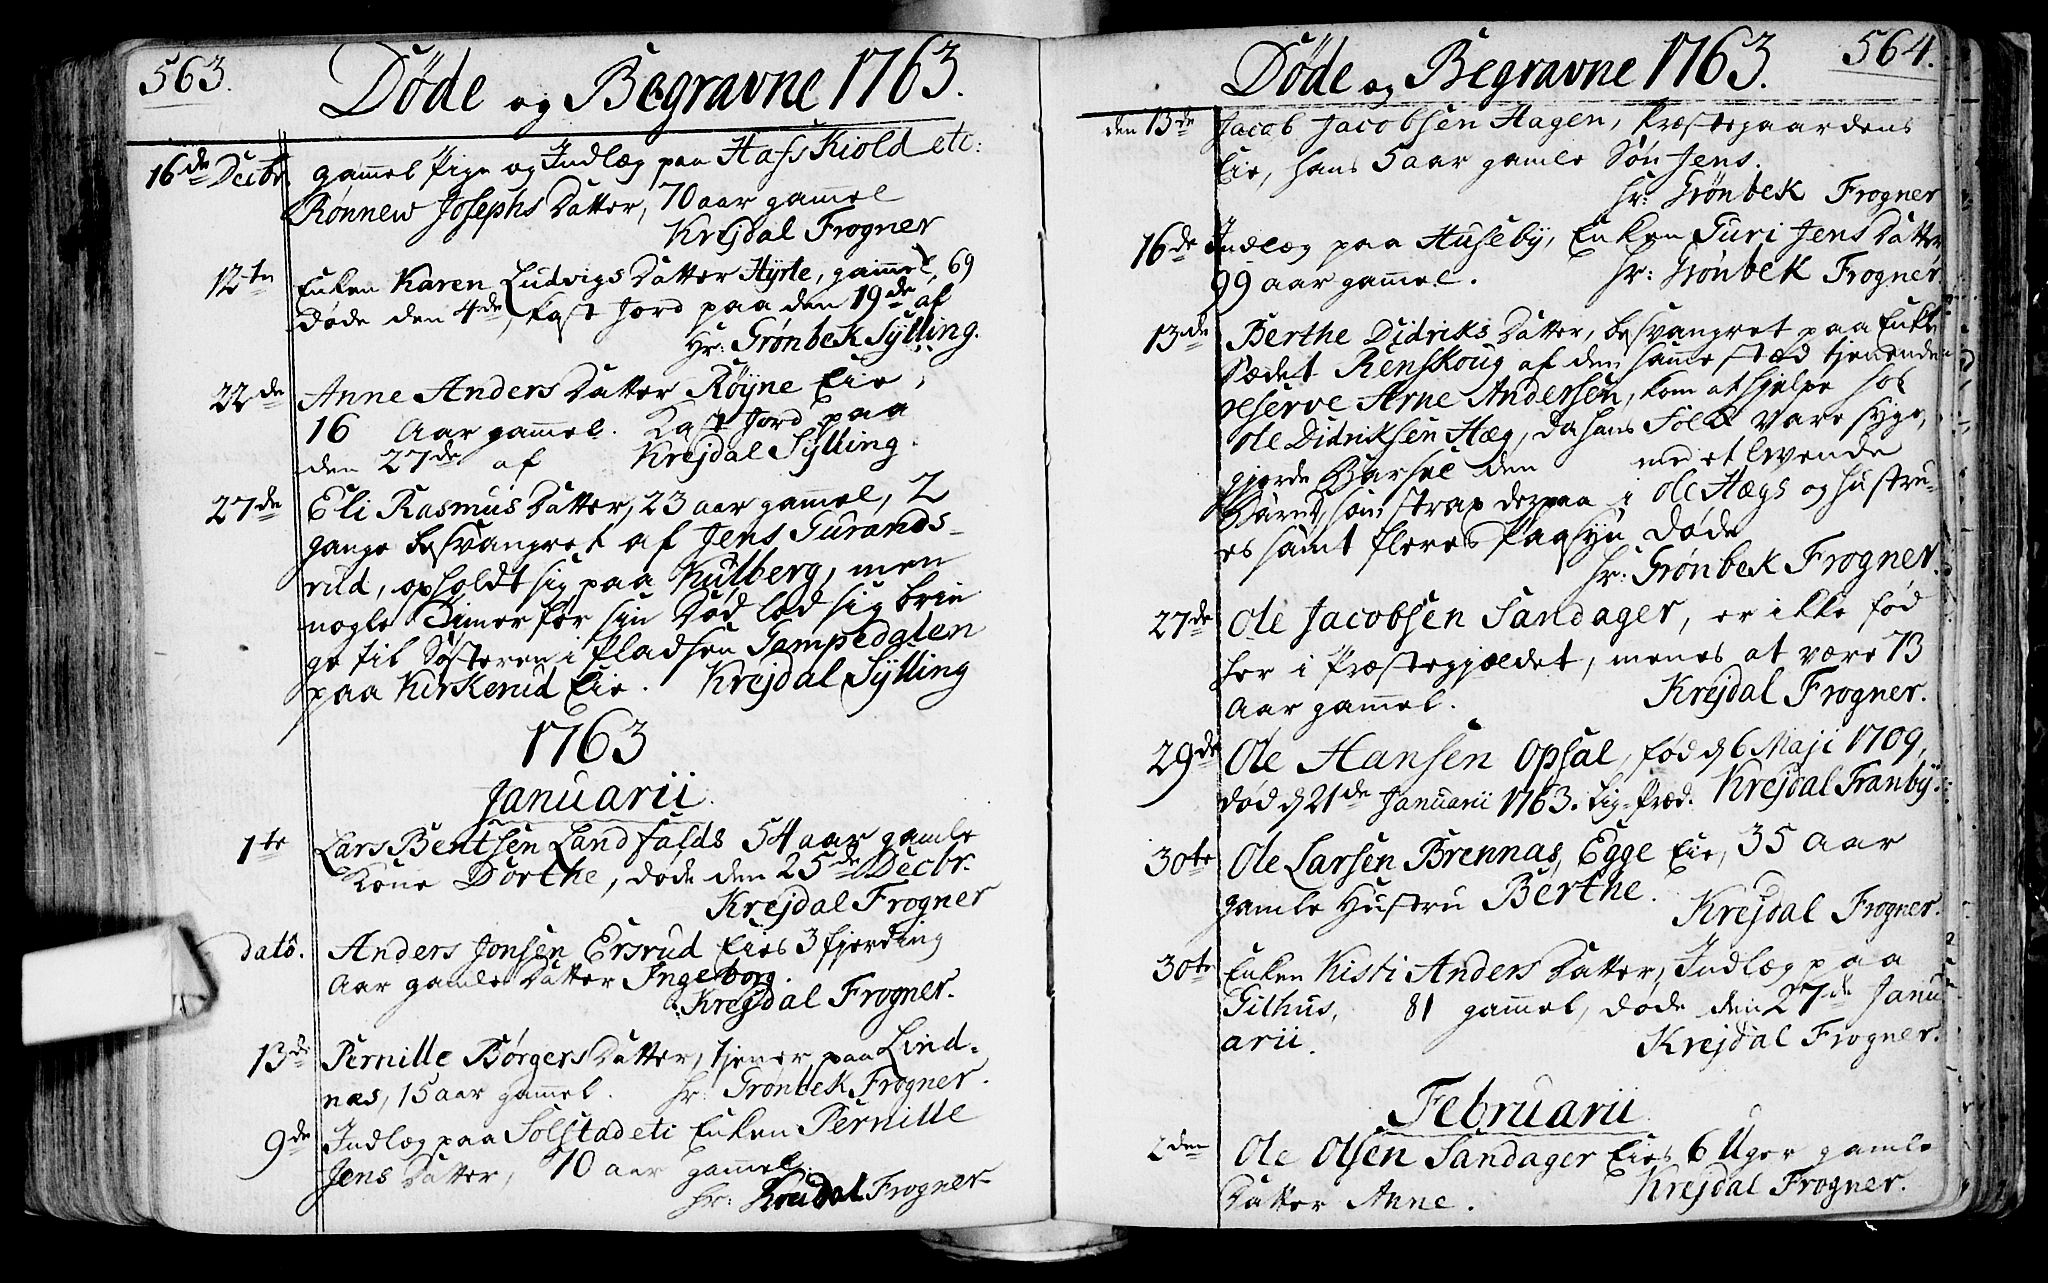 563.
Døde og Begravne 1763.
16de Decbr. gammel Pige og Indlæg paa Hasskiold etc:
Rønnew Josephs Datter, 70 aar gammel
Krejdal Frogner
12te Enken Karen Ludvigs Datter Hyrte, gammel, 69
døde den 4de, Kast Jord paa den 19de af
Hr: Grønbek Sylling.
22de Anne Anders Datter Røyne Eie,
16 Aar gammel. Kast Jord paa
den 27de af Krejdal Sylling.
27de Eli Rasmus Datter, 23 aar gammel, 2
gange besvangret af Jens Gurands-
rud, opholdt sig paa Kulberg, men
nogle Timer før sin Død lod sig brin
ge til Søsteren i Pladsen Gempedalen
paa Kirkerud Eie. Krejdal Sylling
1763
Januarii.
1te Lars Bentsen Landfalds 54 aar gamle
Kone Dorthe, døde den 25de Decbr.
Krejdal Frogner
dato. Anders Jonsen Ersrud Eies 3 fjerding
Aar gamle Datter Ingeborg.
Krejdal Frogner.
13de Pernille Børgers Datter, tjener paa Lind-
næs, 15 aar gammel. Hr: Grønbek Frogner.
9de Indlæg paa Solstad eti Enken Pernille
Jens Datter, 70 aar gammel.
Hr: Kreidal Frogner
564.
Døde og Begravne 1763.
den 13de Jacob Jacobsen Hagen, Præstegaardens
Eie, hans 5 aar gamle Søn Jens.
Hr: Grønbek Frogner
16de Indlæg paa Huseby, Enken Guri Jens Datter
99 aar gammel. Hr: Grønbek Frogner.
13de Berthe Didriks Datter, besvangret paa Enke
Sædet Renskoug af den samme stæd tjenende
reserve Arne Andersen, kom at hjelpe hos
Ole Didriksen Hæg, da hans Folk vare syge,
gjorde Barsel den med et levende
Barn, som strax derpaa i Ole Hægs og Hustru-
es samt fleres Paasyn døde
Hr: Grønbek Frogner.
27de Ole Jacobsen Sandager, er ikke fød
her i Præstegjældet, menes at være 73
Aar gammel. Krejdal Frogner.
29de Ole Hansen Opsal, fød d 6 Maji 1709,
død d 21de Januarii 1763. Lig-Præd. Krejdal Tranby.
30te Ole Larsen Brennas, Egge Eie, 35 Aar
gamle Hustru Berthe. Krejdal Frogner.
30te Enken Kisti Anders Datter, Indlæg paa
Gilhus, 81 gammel, døde den 27de Janu
arii. Krejdal Frogner.
Februarii
2den Ole Olsen Sandager Eies 6 Uger gamle
Datter Anne. Krejdal Frogner.